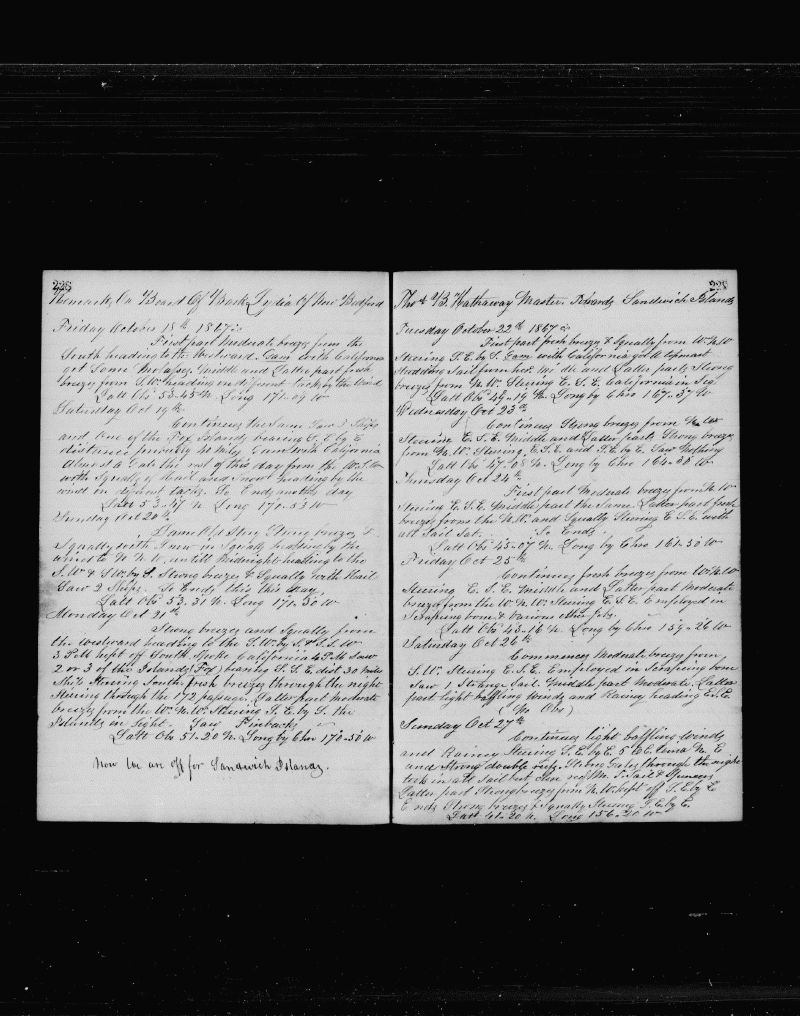 226
Remarks On Board Of Bark Lydia Of New Bedford
Friday October 18th 1867
First part moderate breezes from the
South heading to the Westward. Gam with California
got Some Middle and Latter part fresh
breezes from S.W. heading on different tacks by the Wind
Latt Obs 53-45 N. Long 171-09 W
Saturday Oct 19th
Continues the Same Saw 2 Ships
and one of the Fox Islands bearing S.E. by E
distance Gam with California
Almost a Gale the rest of this day from the W.S.W
with Squalls of Hail and Snow heading by the
wind on different tacks. So Ends another day
Latt 53-47 N Long 170-53 W
Sunday Oct 20th
Same Old Story Strong breezes &
Squally with Snow in Squalls heading by the
wind to N.N.W. untill Midnight heading to the
S.W. & S.W. by S. Strong breezes & Squally with Hail
Saw 2 Ships. So Ends this this day,
Latt Obs 53.31 N. Long 171-30 W
Monday Oct 21th
Strong breezes and Squally from
the westward heading to the S.W. by S. & S.S.W
3 P.M. kept off South. Spoke California 4 P.M. Saw
2 or 3 of the Islands (Fox) bearing S.S.E. dist 30 miles
Ship Steering South, fresh breezes through the night
Steering through the 172 passage. Latter part moderate
breezes from the W.N.W. Steering S.E. by S. the
Islands in Sight. Saw Finbacks
Latt Obs 51-20 N. Long by Chro 170-50 W
Now we are off for Sandwich Islands.
Thos B. Hathaway Master. Towards Sandwich Islands
Tuesday October 22th 1867
First part fresh breezes & Squally from W.N.W
Steering S.E. by S. Gam with California
Studding Sail from her. Middle and Latter parts Strong
breezes from N.W. Steering E.S.E. California in Sight
Latt Obs 49-19 N. Long by Chro 167-37 W
Wednesday Oct 23th
Continues Strong breezes from N.W
Steering E.S.E. Middle and Latter parts Strong breezes
from N.W. Steering E.S.E. and S.E. by E. Saw Nothing
Latt Obs 47-08 N. Long by Chro 164-38 W.
Thursday Oct 24th
First part Moderate breezes from N.W
Steering E.S.E. Middle part the Same. Latter part fresh
breezes from the N.W. and Squally Steering E.S.E. with
all Sail Set. So Ends
Latt Obs 45-07 N. Long by Chro 161-50 W
Friday Oct 25th
Continues fresh breezes from W.N.W
Steering E.S.E. Middle and Latter part Moderate
breezes from the W.N.W. Steering E.S.E. Employed in
Scraping bone & various other jobs.
Latt Obs 43-16 N. Long by Chro 159-26 W
Saturday Oct 26th
Commences Moderate breezes from
S.W. Steering E.S.E. Employed in Scraping bone
Saw 1 Strange Sail. Middle part Moderate. Latter
part light baffling winds and Rainy heading E.S.E
(No Obs)
Sunday Oct 27th
Continues light baffling winds
and Rainey Steering S.E. by E. N.E
and Strong double reefs. Strong Gales through the night
took in all Sail but M. T. Sail & Spencer
Latter part Strong breezes from N.W. kept off S.E. by E
Ends Strong breezes & Squally Steering S.E. by E.
Latt 41-20 N. Long 156-20 W